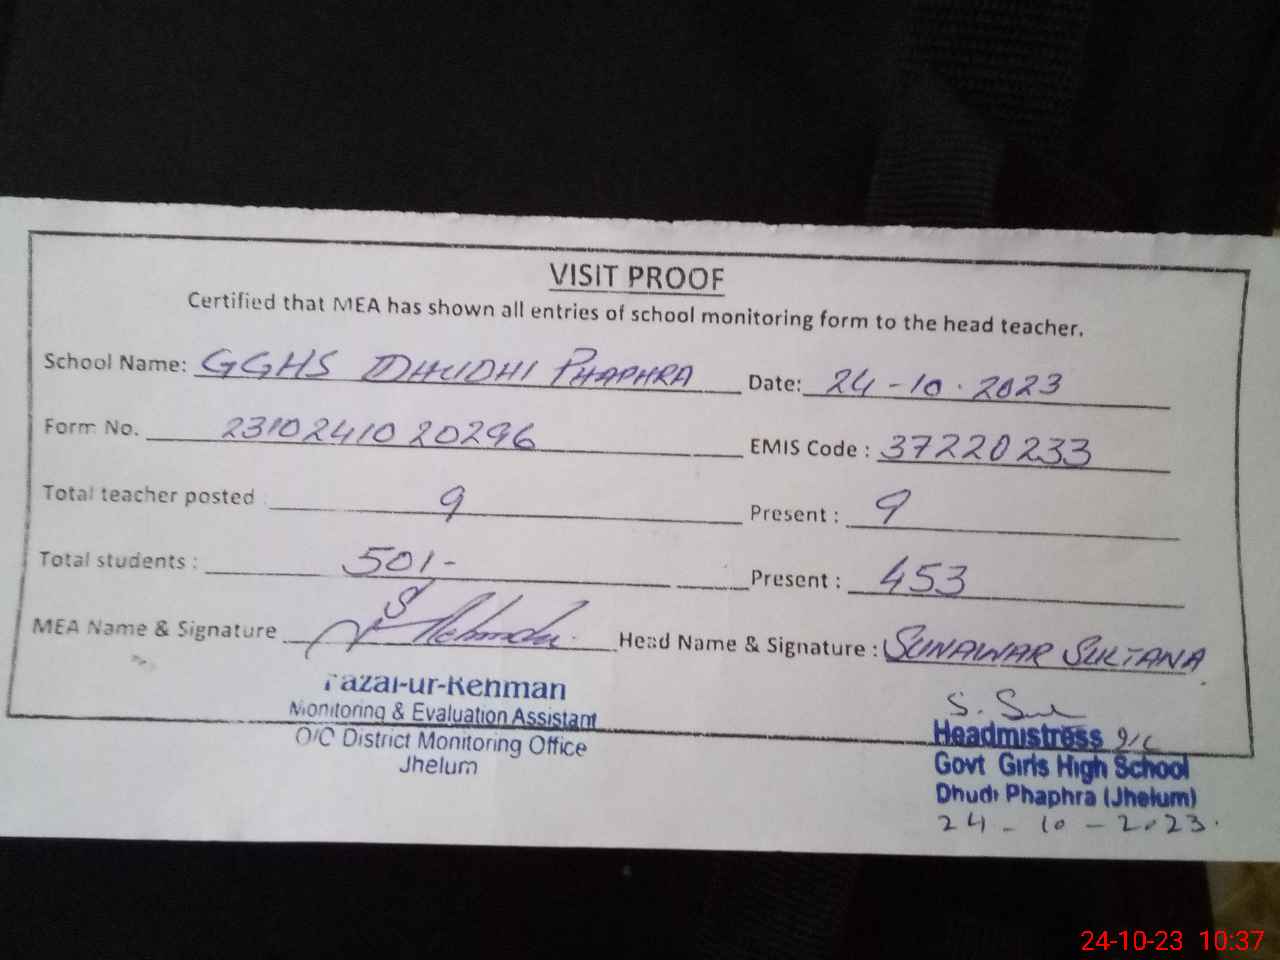 VISIT PROOF
Certified that MEA has shown all entries of school monitoring form to the head teacher.
School Name: GGHS DHUDHI PHAPHRA Date: 24-10.2023
Form No. 23102410 20296 EMIS Code : 37220233
Total teacher posted : 9 Present : 9
Total students : 501- Present : 453
MEA Name & Signature Head Name & Signature : SUNAWAR SULTANA
Fazal-ur-Rehman
Monitoring & Evaluation Assistant
O/C District Monitoring Office
Jhelum
S. Sul
Headmistress I/C
Govt Girls High School
Dhudi Phaphra (Jhelum)
24-10-2023.
24-10-23 10:37